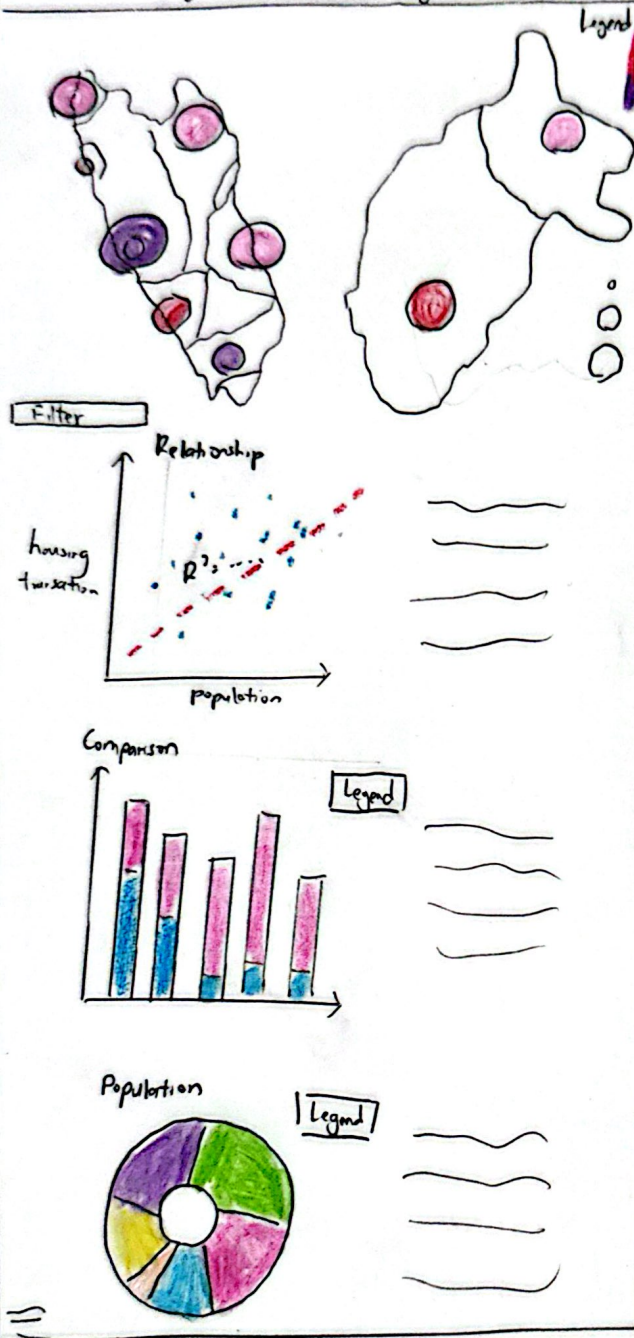 Legend
Filter
Relationship
housing
transation
R²=
population
Comparison
Legend
Population
Legend